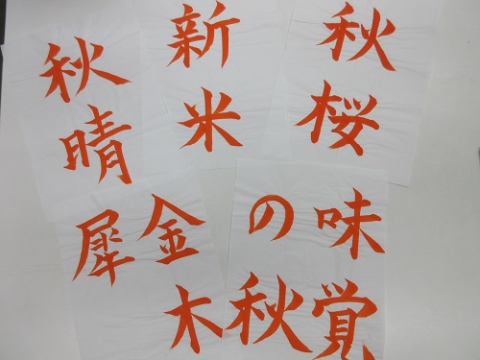 秋桜
新米
秋晴
味覚
の秋
金木
犀